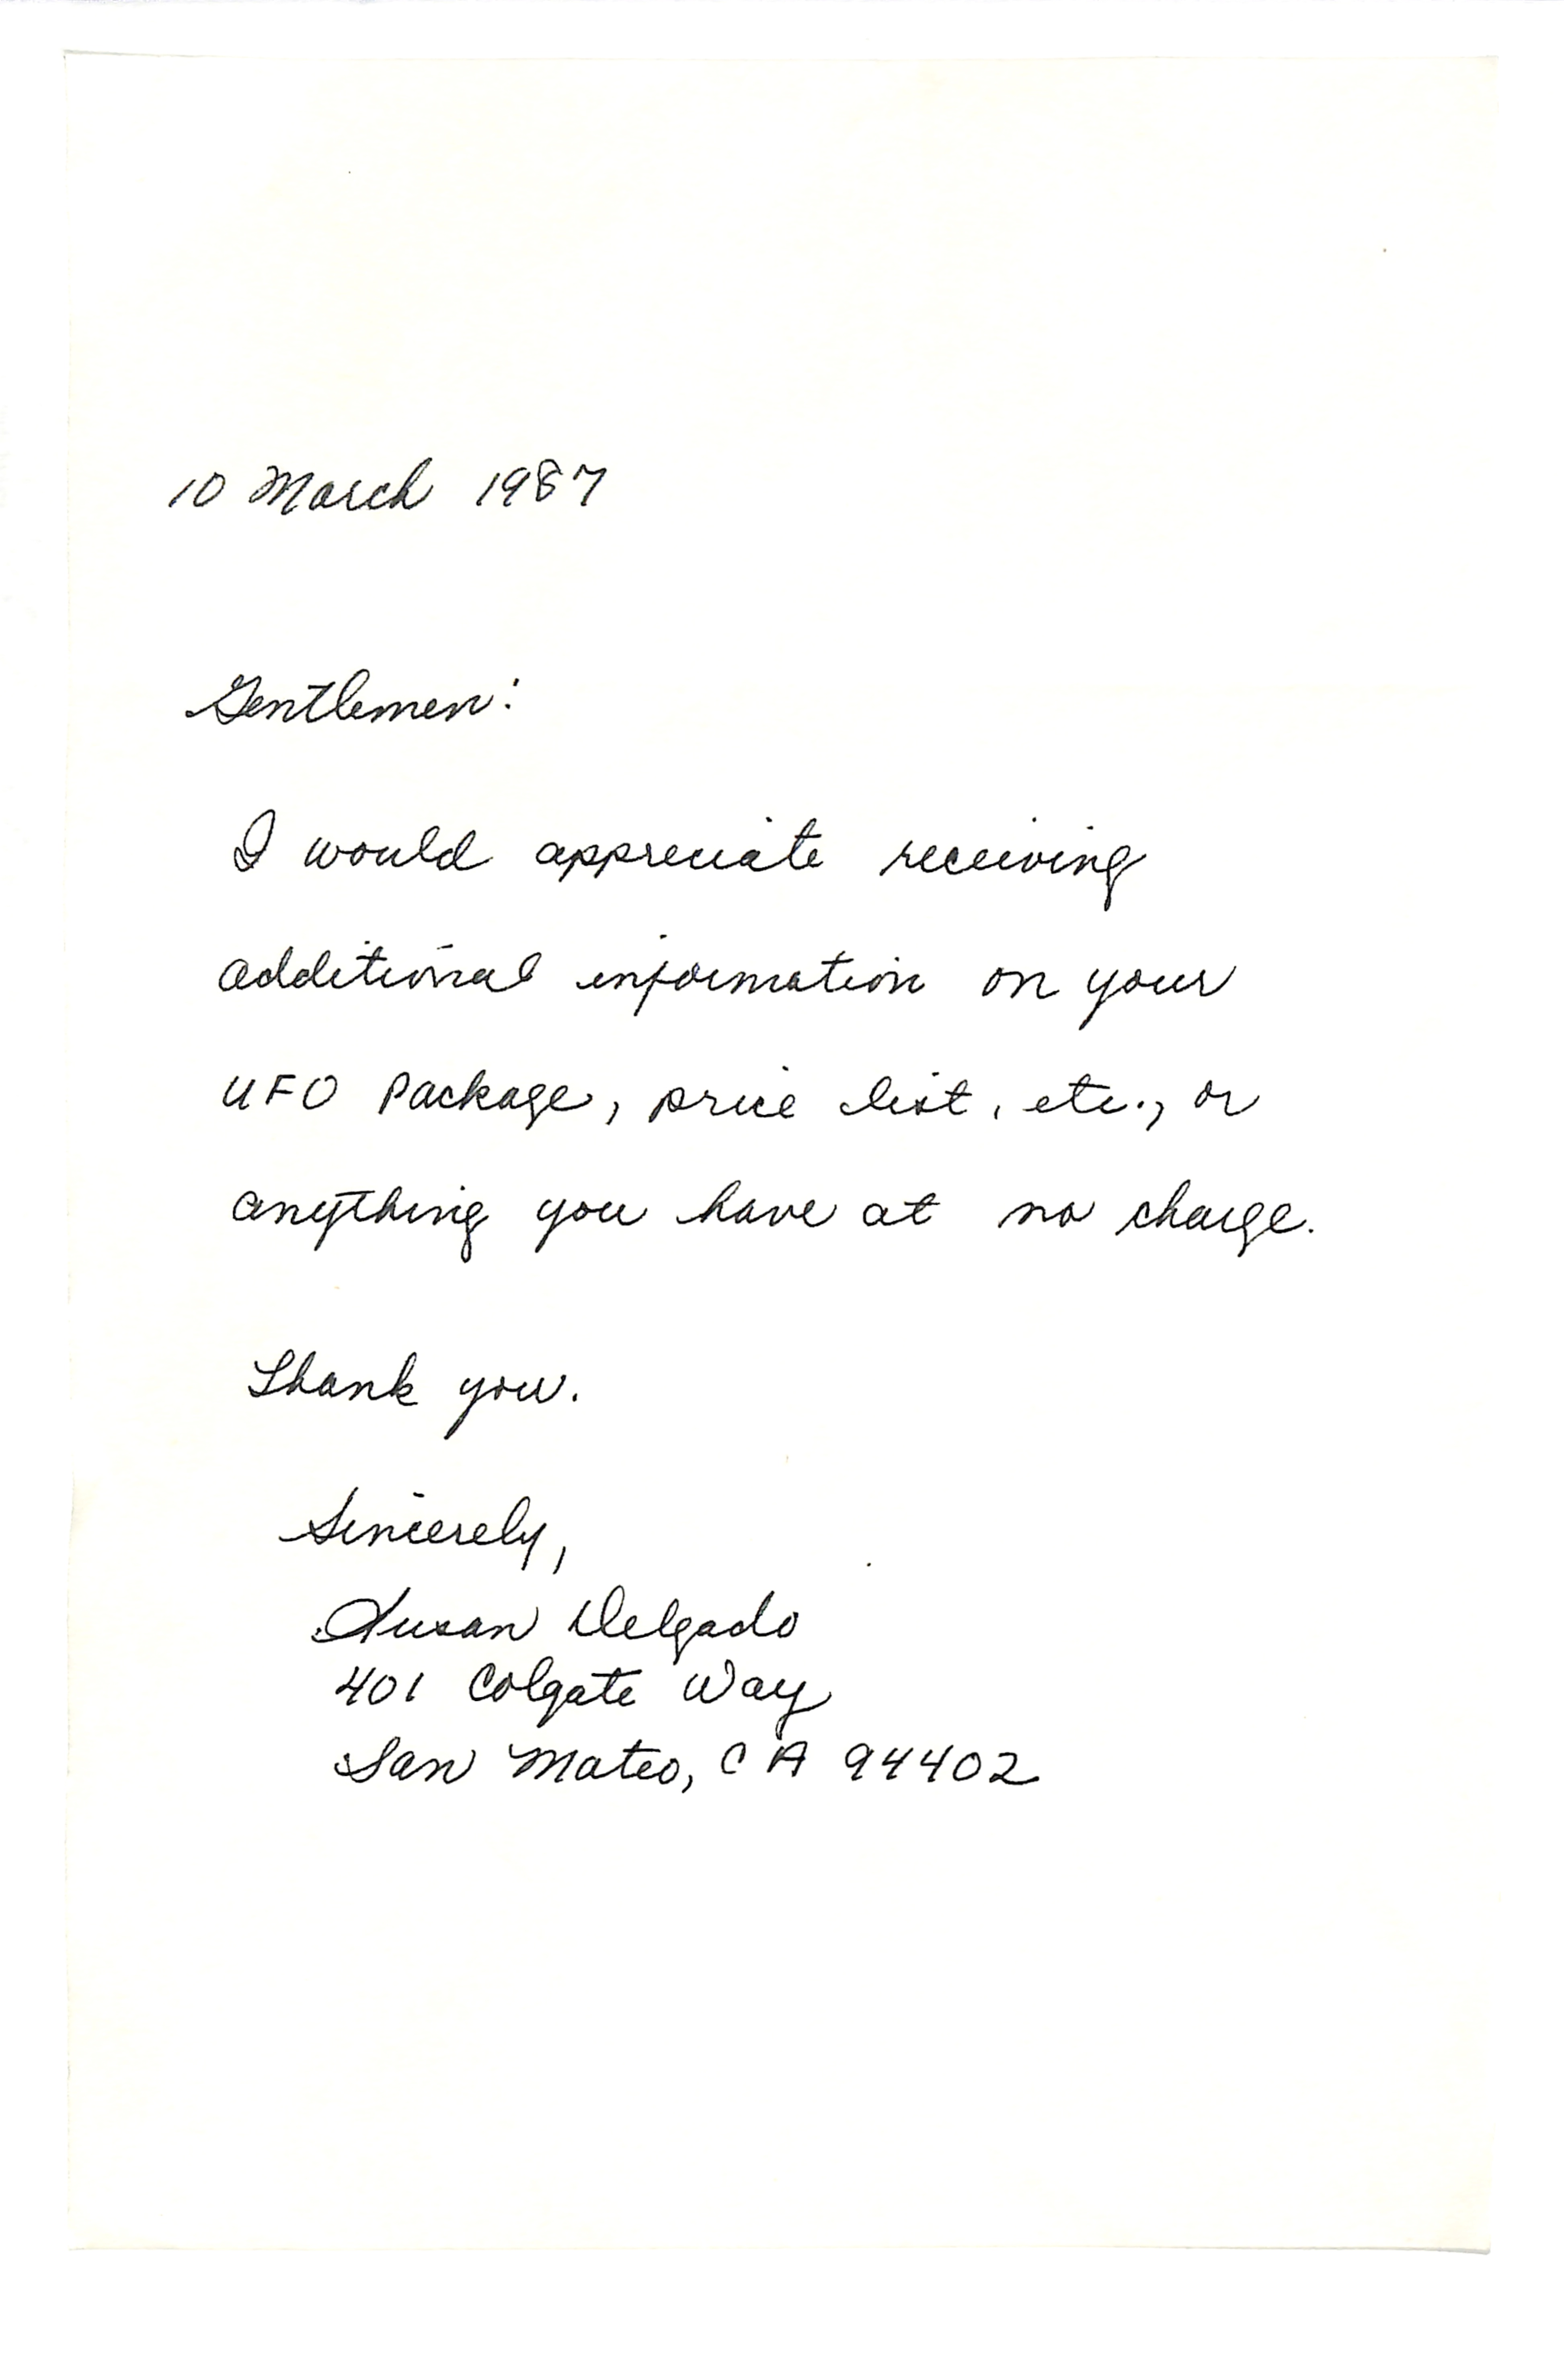 10 March 1987
Gentlemen:
I would appreciate receiving
additional information on your
UFO Package, price list, etc., or
anything you have at no charge.
Thank you.
Sincerely,
Susan Delgado
401 Colgate Way
San Mateo, CA 94402